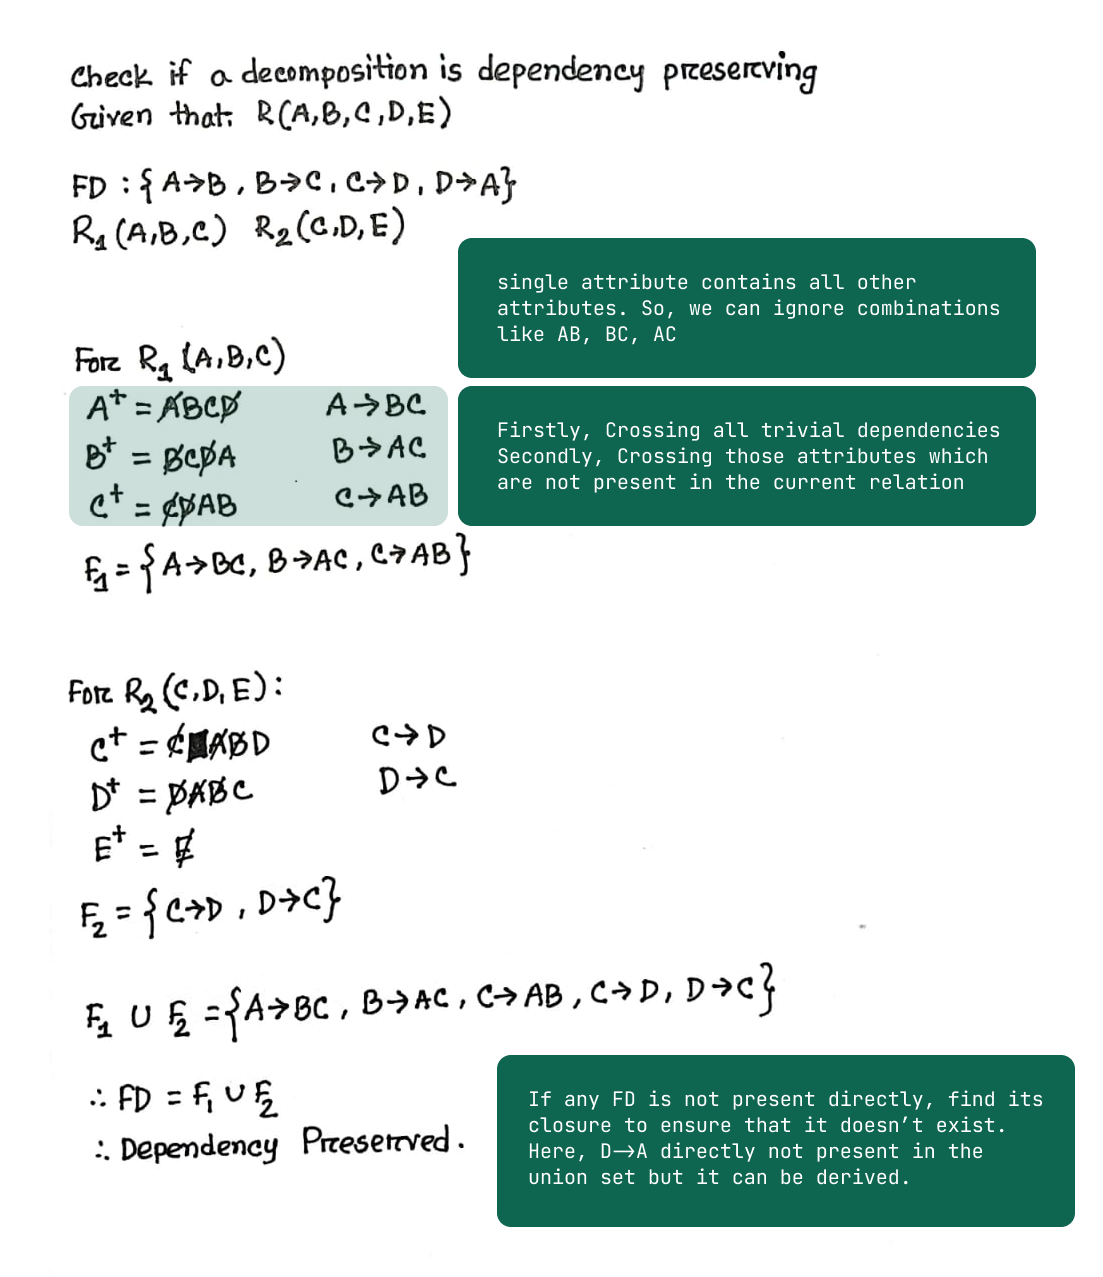 Check if a decomposition is dependency preserving
Given that: R(A,B,C,D,E)
FD : { A→B , B→C , C→D , D→A}
R₁(A,B,C) R₂(C,D,E)
single attribute contains all other
attributes. So, we can ignore combinations
like AB, BC, AC
For R₁ (A,B,C)
A⁺ = ABCD A→BC
B⁺ = BCDA B→AC
C⁺ = CDAB C→AB
Firstly, Crossing all trivial dependencies
Secondly, Crossing those attributes which
are not present in the current relation
F₁ = { A→BC, B→AC, C→AB }
For R₂ (C,D,E):
C⁺ = CABD C→D
D⁺ = DABC D→C
E⁺ = E
F₂ = { C→D , D→C}
F₁ ∪ F₂ = {A→BC , B→AC , C→AB , C→D , D→C}
∴ FD = F₁ ∪ F₂
∴ Dependency Preserved.
If any FD is not present directly, find its
closure to ensure that it doesn’t exist.
Here, D→A directly not present in the
union set but it can be derived.